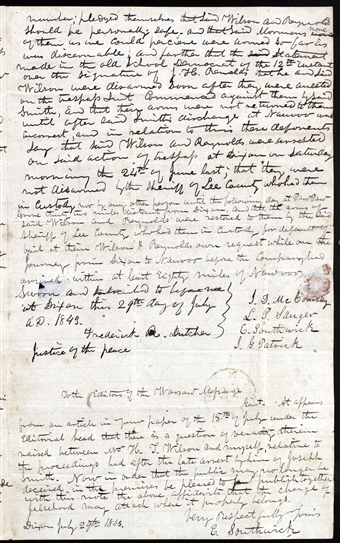 number, pledged themselves that said Wilson and Reynolds
should be personally safe, and that said Mormons none
of them as we could perceive were armed so far as
was discernable; and further that the statement
made in the old School Democrat of the 12th instant
over the signature of J. H. Reynolds that he and said
Wilson were disarmed soon after they were arrested
on the trespass suit commenced against them by said
Smith, and that they arms were not returned to them
until after said Smiths discharge at Nauvoo was
incorrect, and in relation to this these deponents
say that said Wilson and Reynolds were arrested
on said action of trespass at Dixon on Saturday
morning the 24th of June last; that they were
not disarmed by the Sheriff of Lee County who had them
in Custody nor by any other person until the following day at Paw Paw
Grove thirty two miles distant from Dixon and the arms
said Wilson and Reynolds were restored to them by the said
Sheriff of Lee County who had them in Custody for default of
bail at their Wilson & Reynolds own request while on the
journey from Dixon to Nauvoo before the Company had
arrived within at least Eighty miles of Nauvoo
Sworn and subscribed to before me
at Dixon this 29th day of July
A.D. 1843.
Frederick R. Dutcher
Justice of the peace
J. D. McComsey
L. P. Sanger
E. Southwick
S. G. Patrick
To the Editor of the Warsaw Message
Gent. It appears
from an article in your paper of the 15th of July under the
Editorial head that there is a question of veracity therein
raised between Mr. H. T. Wilson and myself relative to
the proceedings had after the late arrest of Joseph
Smith. Now in order that the public may no longer be
deceived in the premises be pleased to publish together
with this note the above affidavits that the charge of
falsehood may attach where it properly belongs.
Very respectfully Yours
Dixon July 29th 1843. E. Southwick